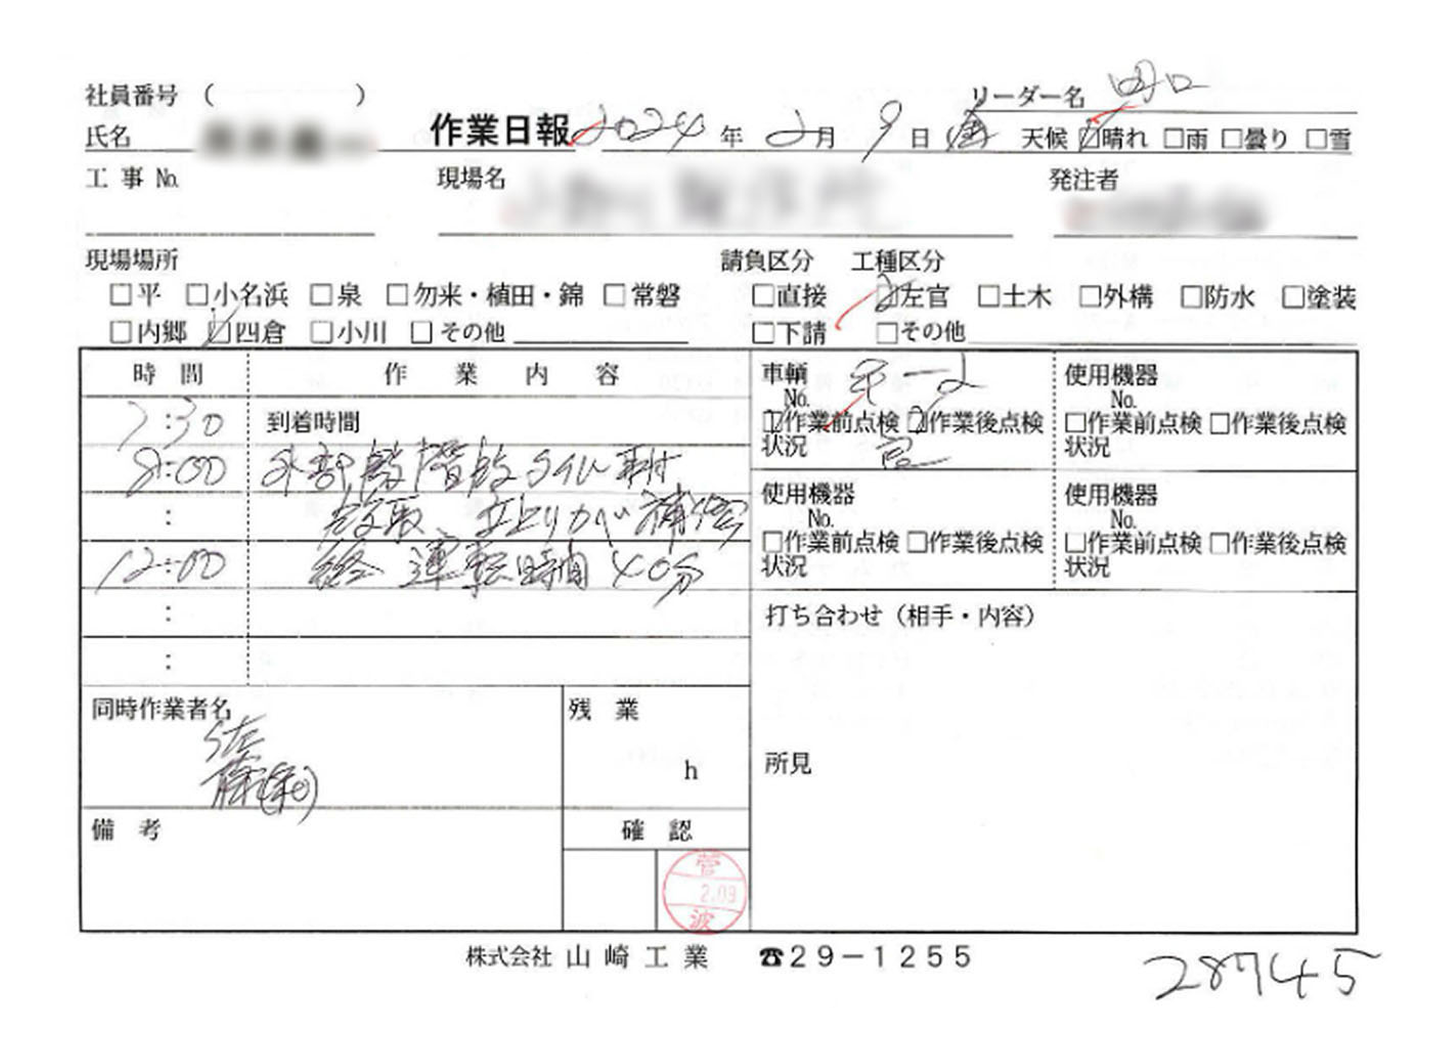 社員番号 (          )
リーダー名 田口
氏名
作業日報 2024 年 2月 9日 金 天候 ☑晴れ □雨 □曇り □雪
工事 No. 現場名 発注者
現場場所 請負区分 工種区分
□平 □小名浜 □泉 □勿来・植田・錦 □常磐 □直接 ☑左官 □土木 □外構 □防水 □塗装
□内郷 ☑四倉 □小川 □その他 □下請 □その他
時間 作業内容
7:30 到着時間
8:00 外部 階段タイル
: 段取、立上りかべ補修
12:00 終 運転時間 40分
:
:
車輌
No.
☑作業前点検 ☑作業後点検
状況 良
使用機器
No.
□作業前点検 □作業後点検
状況
使用機器
No.
□作業前点検 □作業後点検
状況
使用機器
No.
□作業前点検 □作業後点検
状況
打ち合わせ（相手・内容）
所見
同時作業者名
佐
藤(和)
残業
h
備考
確認
菅
2.09
波
株式会社 山崎工業 ☎29-1255
28745